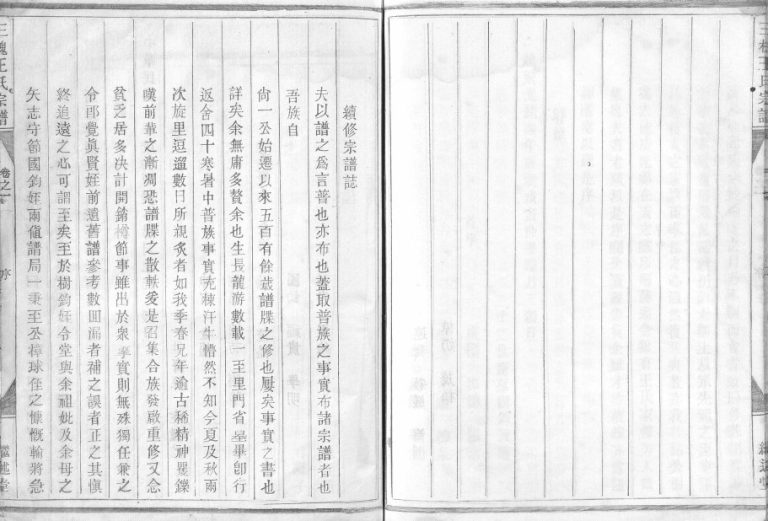 續修宗譜誌
夫以譜之為言普也亦布也蓋取普族之事實布諸宗譜者也
吾族自
尙一公始遷以來五百有餘歲譜牒之修也屢矣事實之書也
詳矣余無庸多贅余也生長龍游數載一至里門省墓畢卽行
返舍四十寒暑中普族事實充棟汗牛懵然不知今夏及秋兩
次旋里逗遛數日所親炙者如我季春兄年逾古稀精神矍鑠
嘆前輩之漸凋恐譜牒之散軼爰是召集合族發啟重修又念
貧乏居多決計開鋪樽節事雖出於衆擎實則無殊獨任兼之
令郎覺眞賢姪前追舊譜參考數回漏者補之誤者正之其愼
終追遠之心可謂至矣至於樹鈞姪令堂與余祖妣及余母之
矢志守節國鈞姪兩值譜局一秉至公樟球侄之慷慨輸將急
三槐王氏宗譜
卷之一
序
繼述堂
三槐王氏宗譜